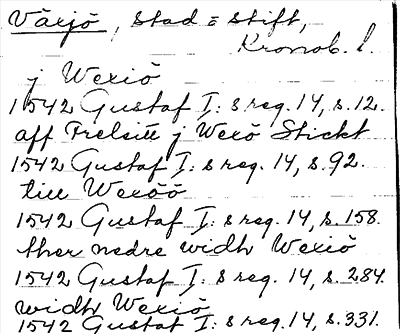 Växjö, stad = stift,
Kronob. l.
j Wexiö
1542 Gustaf I: s reg. 14, s. 12.
aff Frelsitt j Wexö Stickt
1542 Gustaf I: s reg. 14, s. 92.
till Wexöö
1542 Gustaf I: s reg. 14, s. 158.
ther nedre widh Wexiö
1542 Gustaf I: s reg. 14, s. 284.
widh Wexiö
1542 Gustaf I: s reg. 14, s. 331.